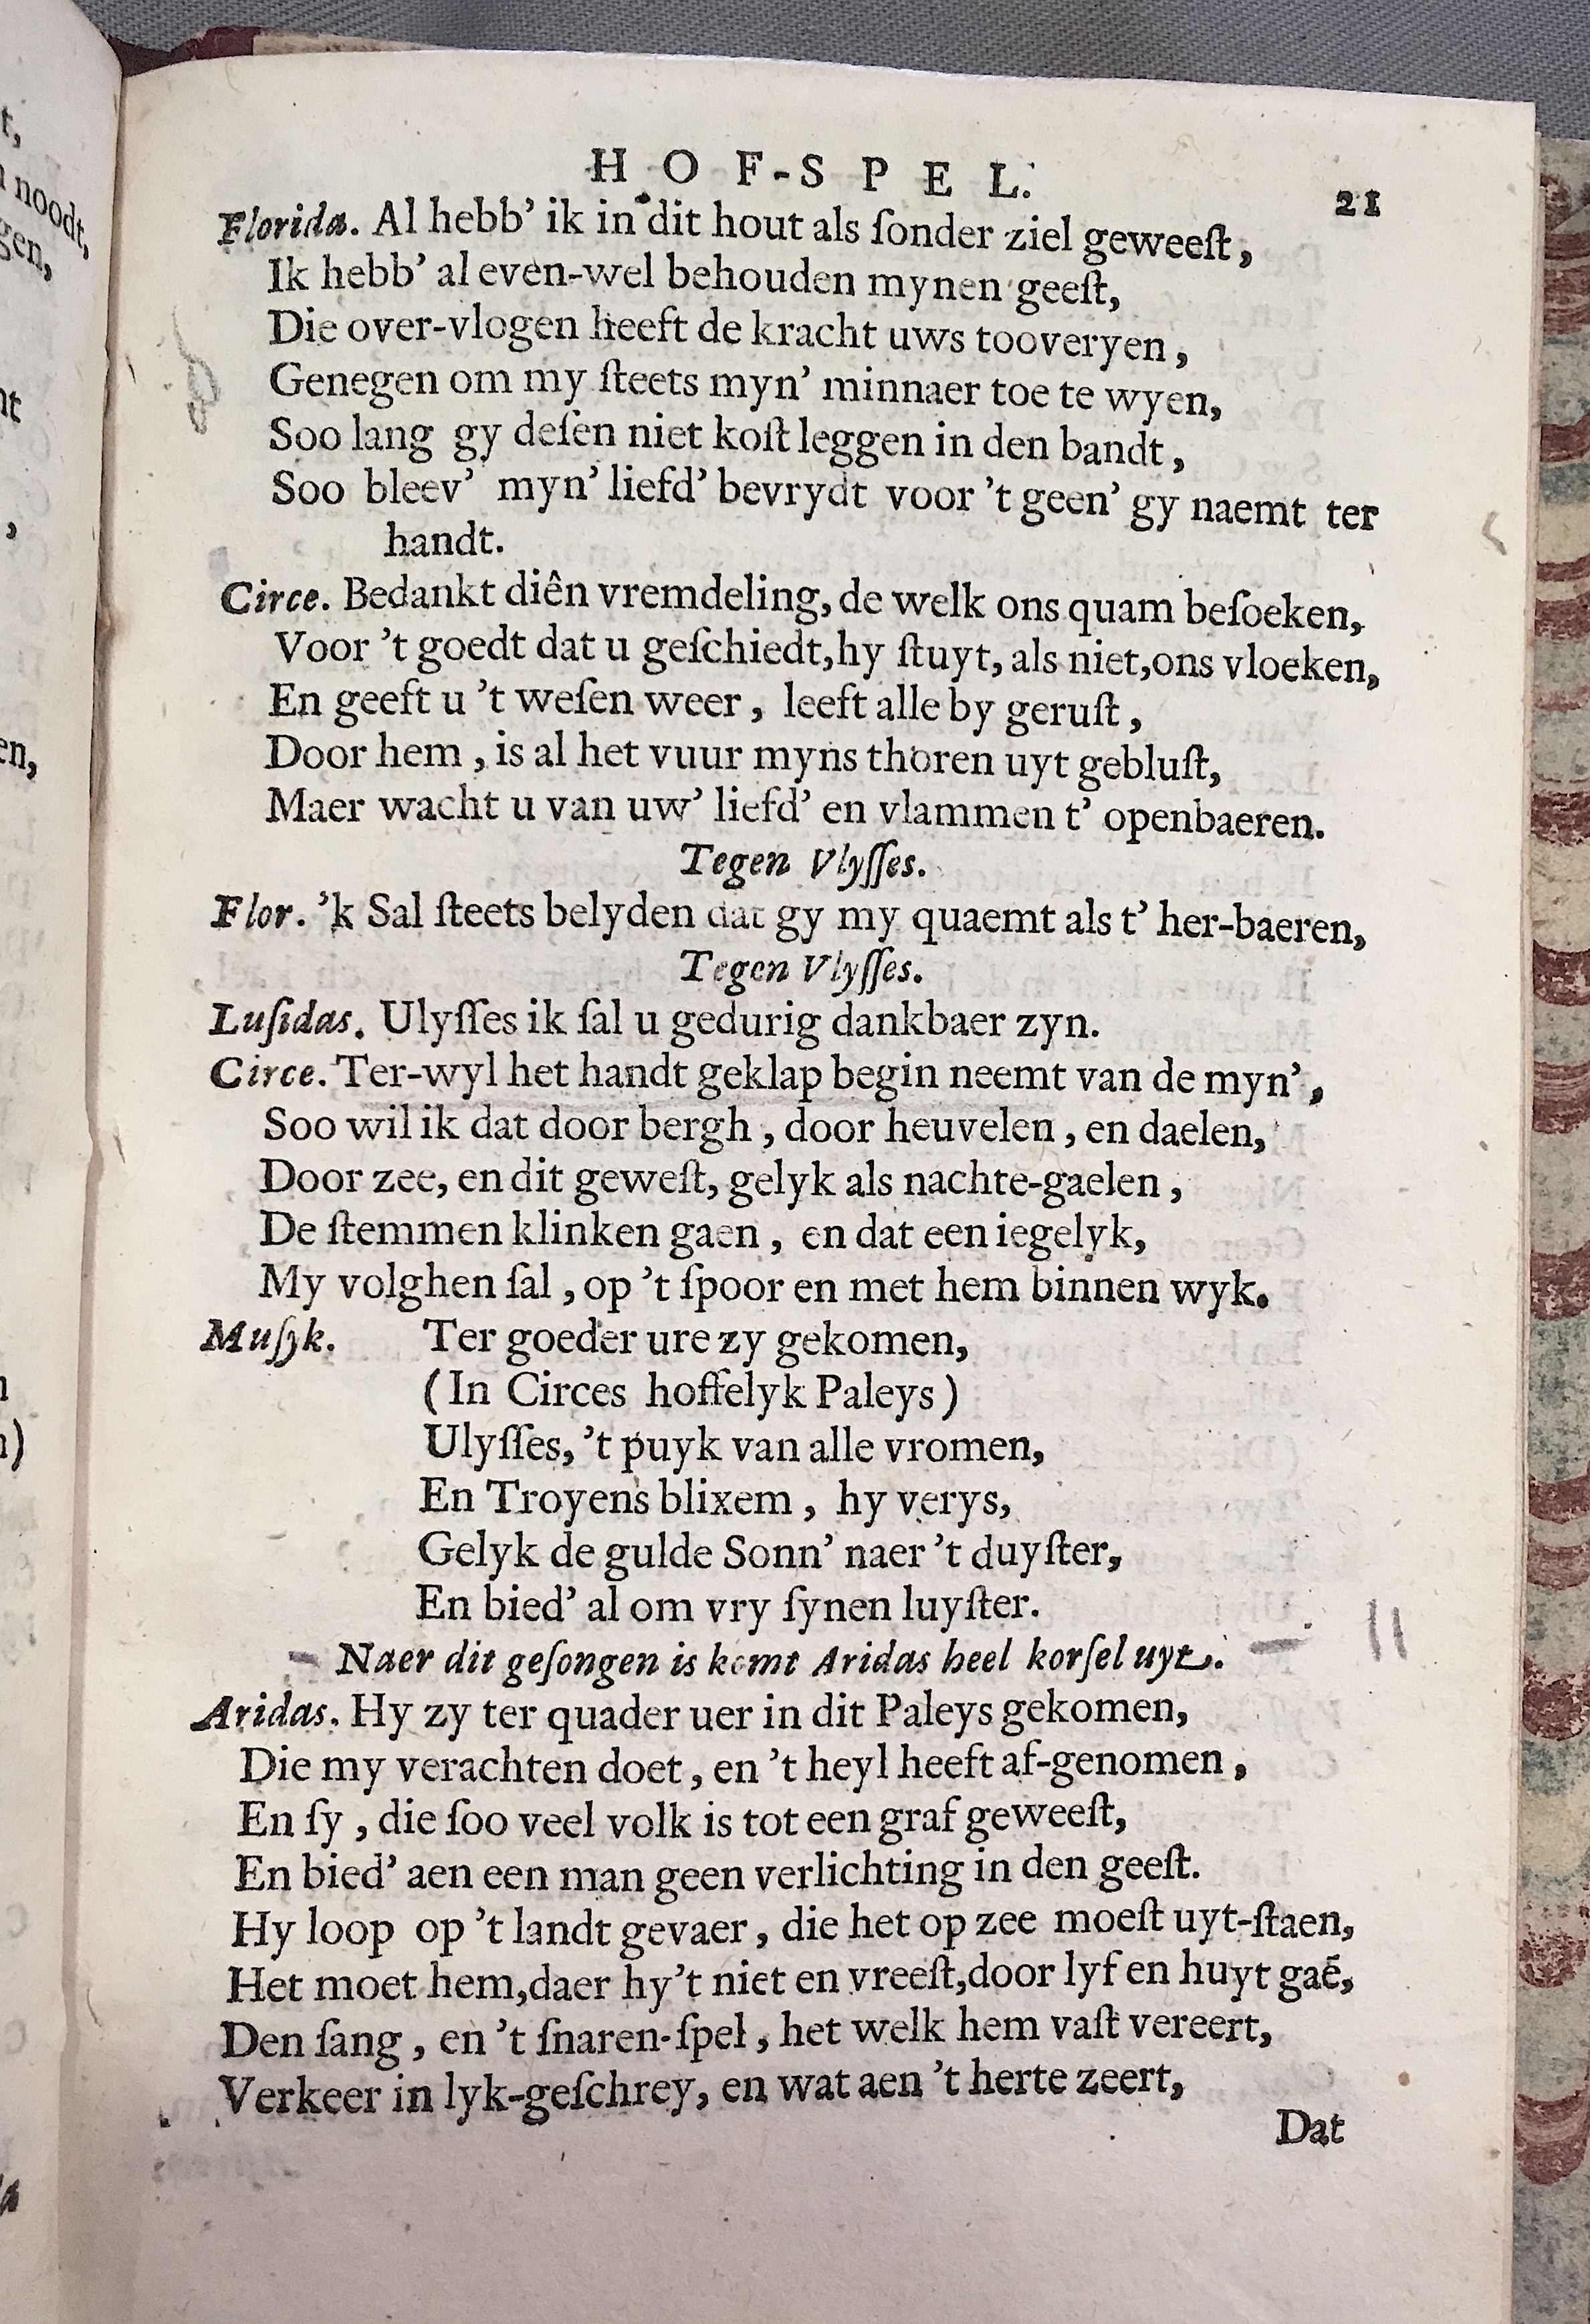 HOF-SPEL. 21
Florida. Al hebb’ ik in dit hout als ſonder ziel geweeſt,
Ik hebb’ al even-wel behouden mynen geeſt,
Die over-vlogen heeft de kracht uws tooveryen,
Genegen om my ſteets myn’ minnaer toe te wyen,
Soo lang gy deſen niet koſt leggen in den bandt,
Soo bleev’ myn’ liefd’ bevrydt voor ’t geen’ gy naemt ter
handt.
Circe. Bedankt diên vremdeling, de welk ons quam beſoeken,
Voor ’t goedt dat u geſchiedt, hy ſtuyt, als niet, ons vloeken,
En geeft u ’t weſen weer, leeft alle by geruſt,
Door hem, is al het vuur myns thoren uyt gebluſt,
Maer wacht u van uw’ liefd’ en vlammen t’ openbaeren.
Tegen Vlyſſes.
Flor. ’k Sal ſteets belyden dat gy my quaemt als t’ her-baeren,
Tegen Vlyſſes.
Luſidas. Ulyſſes ik ſal u gedurig dankbaer zyn.
Circe. Ter-wyl het handt geklap begin neemt van de myn’,
Soo wil ik dat door bergh, door heuvelen, en daelen,
Door zee, en dit geweſt, gelyk als nachte-gaelen,
De ſtemmen klinken gaen, en dat een iegelyk,
My volghen ſal, op ’t ſpoor en met hem binnen wyk.
Muſyk. Ter goeder ure zy gekomen,
(In Circes hoffelyk Paleys)
Ulyſſes, ’t puyk van alle vromen,
En Troyens blixem, hy verys,
Gelyk de gulde Sonn’ naer ’t duyſter,
En bied’ al om vry ſynen luyſter.
Naer dit geſongen is komt Aridas heel korſel uyt.
Aridas. Hy zy ter quader uer in dit Paleys gekomen,
Die my verachten doet, en ’t heyl heeft af-genomen,
En ſy, die ſoo veel volk is tot een graf geweeſt,
En bied’ aen een man geen verlichting in den geeſt.
Hy loop op ’t landt gevaer, die het op zee moeſt uyt-ſtaen,
Het moet hem, daer hy ’t niet en vreeſt, door lyf en huyt gaē,
Den ſang, en ’t ſnaren-ſpel, het welk hem vaſt vereert,
Verkeer in lyk-geſchrey, en wat aen ’t herte zeert,
Dat